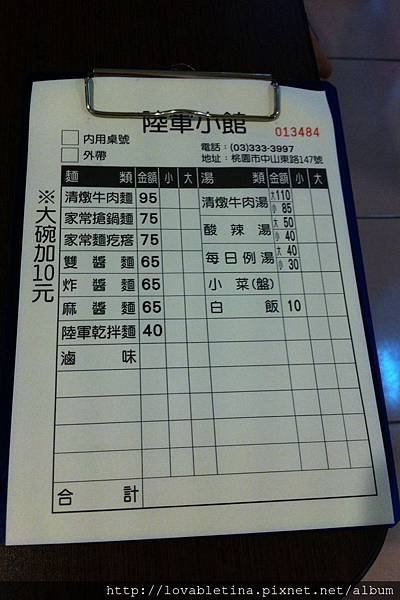 陸軍小館
013484
內用桌號
外帶
電話：(03)333-3997
地址：桃園市中山東路147號
※大碗加10元
麵類 金額 小 大 湯類 金額 小 大
清燉牛肉麵 95 清燉牛肉湯 大110 小85
家常搶鍋麵 75 酸辣湯 大50 小40
家常麵疙瘩 75 每日例湯 大40 小30
雙醬麵 65 小菜(盤)
炸醬麵 65 白飯 10
麻醬麵 65
陸軍乾拌麵 40
滷味
合計
http://lovabletina.pixnet.net/album